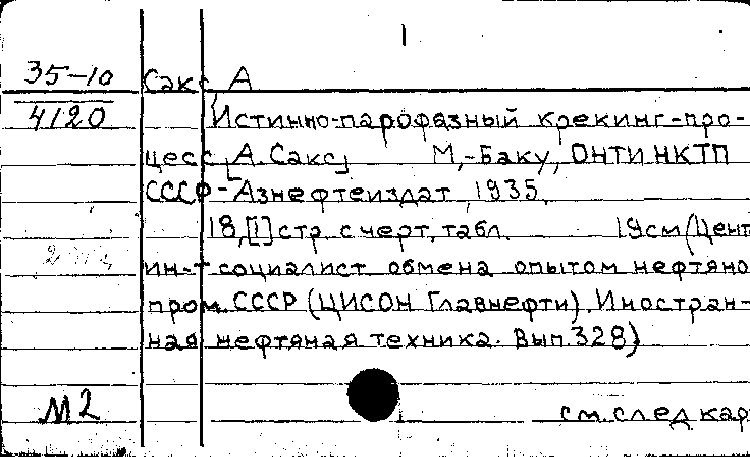 1
35-10 Сакс, А
4120 Истинно-парофазный крекинг-про-
цесс [А. Сакс] М,-Баку, ОНТИ НКТП
СССР-Азнефтеиздат, 1935,
18,[1] стр. с черт, табл. 19см (Цент
ин-т социалист обмена опытом нефтяно
пром. СССР (ЦИСОН Главнефти). Иностран-
ная нефтяная техника. Вып. 328)
М2
см. след кар